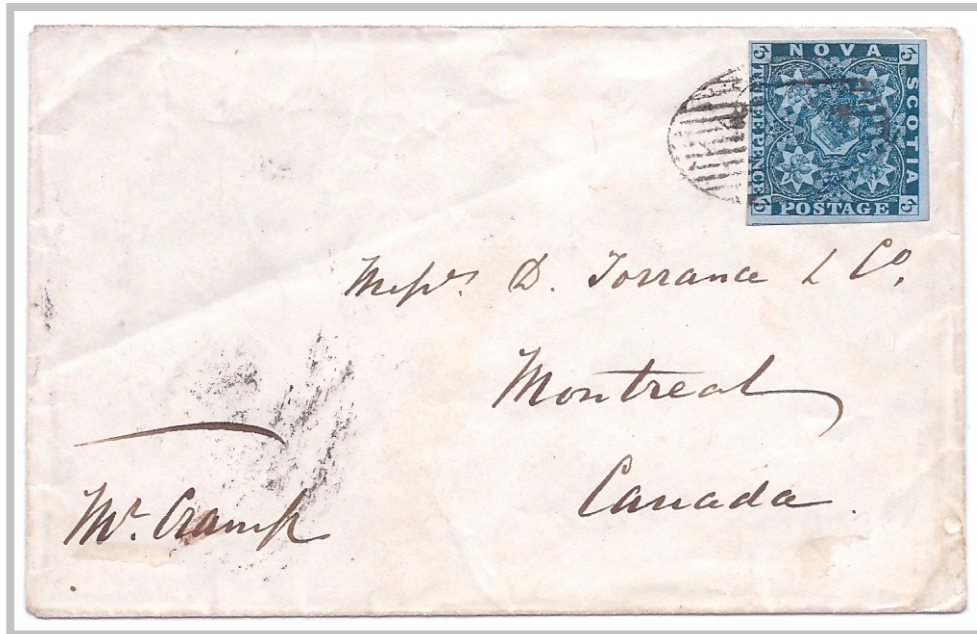 NOVA
SCOTIA
THREE PENCE
POSTAGE
Messrs. D. Torrance & Co.
Montreal
Canada.
Mr. Cramp